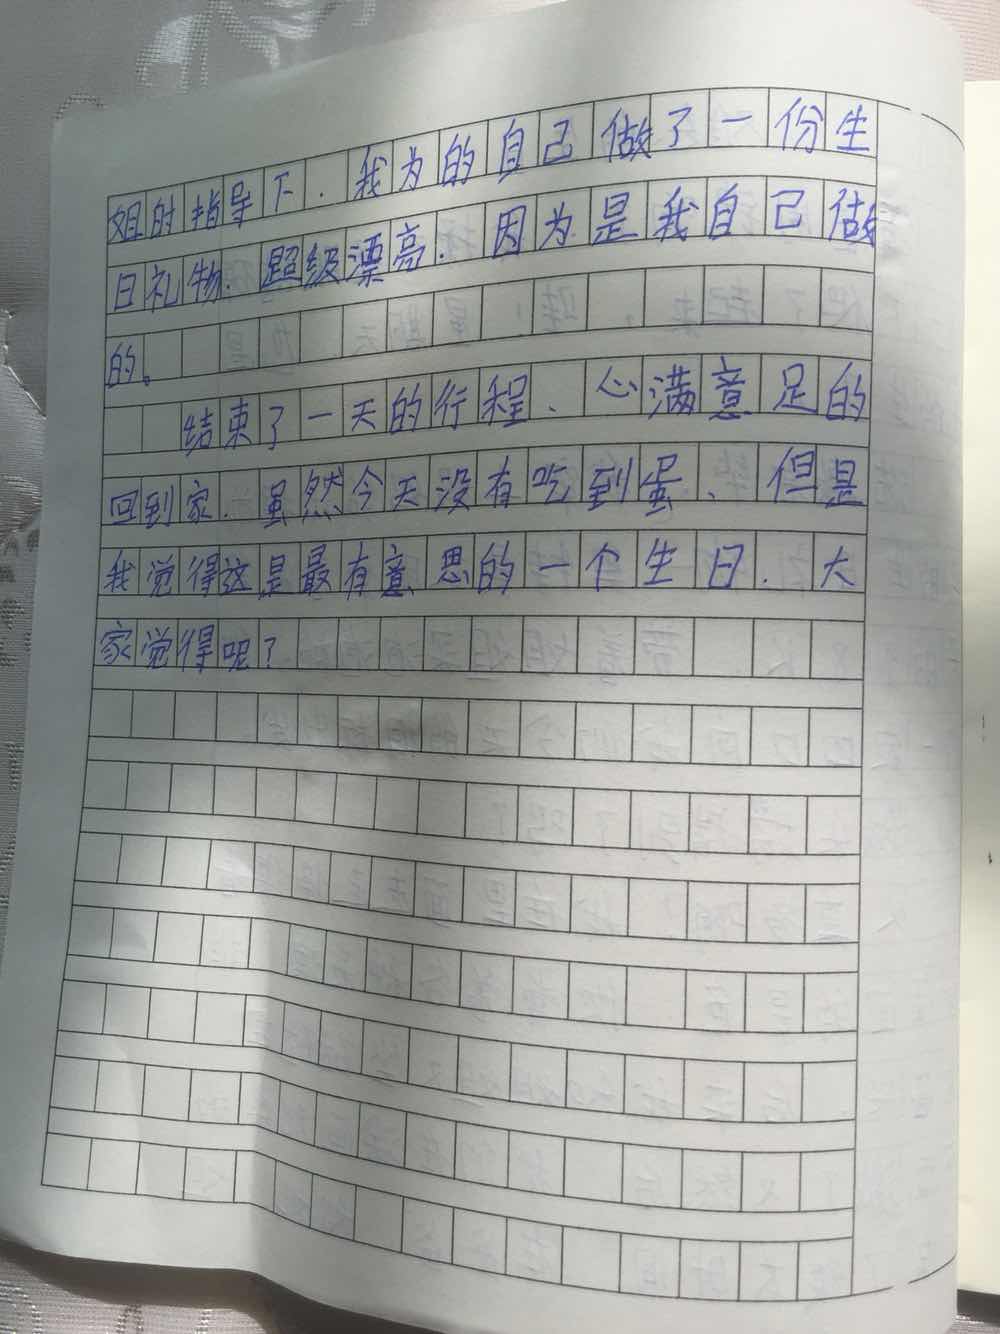 姐的指导下.我为的自己做了一份生
日礼物.超级漂亮.因为是我自己做
的。
结束了一天的行程、心满意足的
回到家.虽然今天没有吃到蛋、但是
我觉得这是最有意思的一个生日.大
家觉得呢?